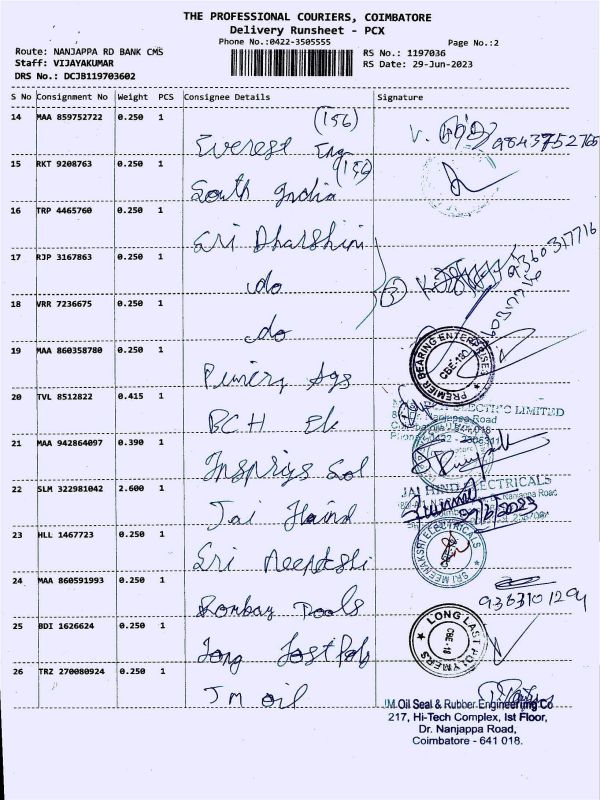 THE PROFESSIONAL COURIERS, COIMBATORE
Delivery Runsheet - PCX
Phone No.:0422-3505555
Page No.:2
Route: NANJAPPA RD BANK CMS
Staff: VIJAYAKUMAR
DRS No.: DCJB119703602
RS No.: 1197036
RS Date: 29-Jun-2023
S No Consignment No Weight PCS Consignee Details Signature
14 MAA 859752722 0.250 1
(156)
Everest Eng
V.
9843752765
15 RKT 9208763 0.250 1
(156)
South India
16 TRP 4465760 0.250 1
Sri Dharshini
17 RJP 3167863 0.250 1
do
(3)
9360317716
18 VRR 7236675 0.250 1
do
19 MAA 860358780 0.250 1
PREMIER BEARING ENTERPRISES
CBE-18
20 TVL 8512822 0.415 1
BCH Ele
ELECTRIC LIMITED
Nanjappa Road
21 MAA 942864097 0.390 1
22 SLM 322981042 2.600 1
Jai Haind
JAI HIND ELECTRICALS
Nanjappa Road
29/6/2023
23 HLL 1467723 0.250 1
Sri Meenakshi
SRI MEENAKSHI ELECTRICALS
24 MAA 860591993 0.250 1
Bombay Tools
9363101294
25 BDI 1626624 0.250 1
Long Last Poly
LONG LAST POLYMERS
CBE-18
26 TRZ 270080924 0.250 1
JM oil
JM Oil Seal & Rubber Engineering Co
217, Hi-Tech Complex, Ist Floor,
Dr. Nanjappa Road,
Coimbatore - 641 018.